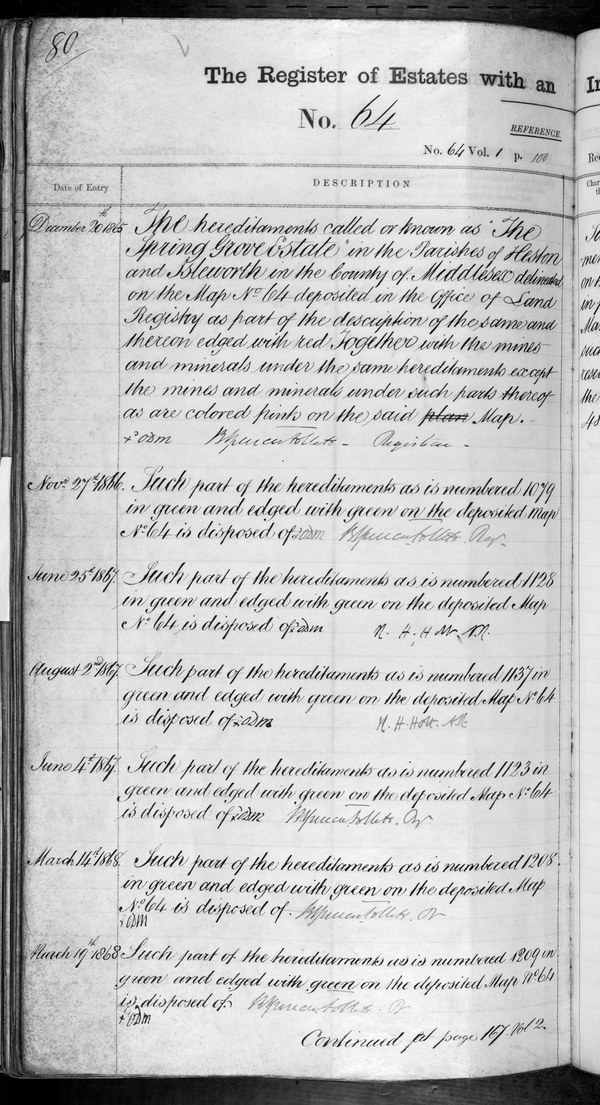 80.
The Register of Estates with an
No. 64
REFERENCE.
No. 64 Vol. 1 p. 100
Date of Entry
DESCRIPTION
December 20th 1865
The hereditaments called or known as "The
Spring Grove Estate" in the Parishes of Heston
and Isleworth in the County of Middlesex delineated
on the Map No. 64 deposited in the Office of Land
Registry as part of the description of the same and
thereon edged with red Together with the mines
and minerals under the same hereditaments except
the mines and minerals under such parts thereof
as are colored pink on the said plan Map.
BSpencerFollett - Registrar -
Novr. 27th 1866.
Such part of the hereditaments as is numbered 1079
in green and edged with green on the deposited Map
No. 64 is disposed of BSpencerFollett. Regr.
June 25th 1867.
Such part of the hereditaments as is numbered 1128
in green and edged with green on the deposited Map
No. 64 is disposed of R. H. Holt A.R.
August 2nd 1867.
Such part of the hereditaments as is numbered 1137 in
green and edged with green on the deposited Map No. 64
is disposed of R. H. Holt. A.R.
June 4th 1867.
Such part of the hereditaments as is numbered 1123 in
green and edged with green on the deposited Map No. 64
is disposed of BSpencerFollett. Regr
March 14th 1868.
Such part of the hereditaments as is numbered 1208
in green and edged with green on the deposited Map
No. 64 is disposed of. BSpencerFollett. R
March 19th 1868
Such part of the hereditaments as is numbered 1209 in
green and edged with green on the deposited Map No. 64
is disposed of. BSpencerFollett. R
Continued at page 167 Vol 2.